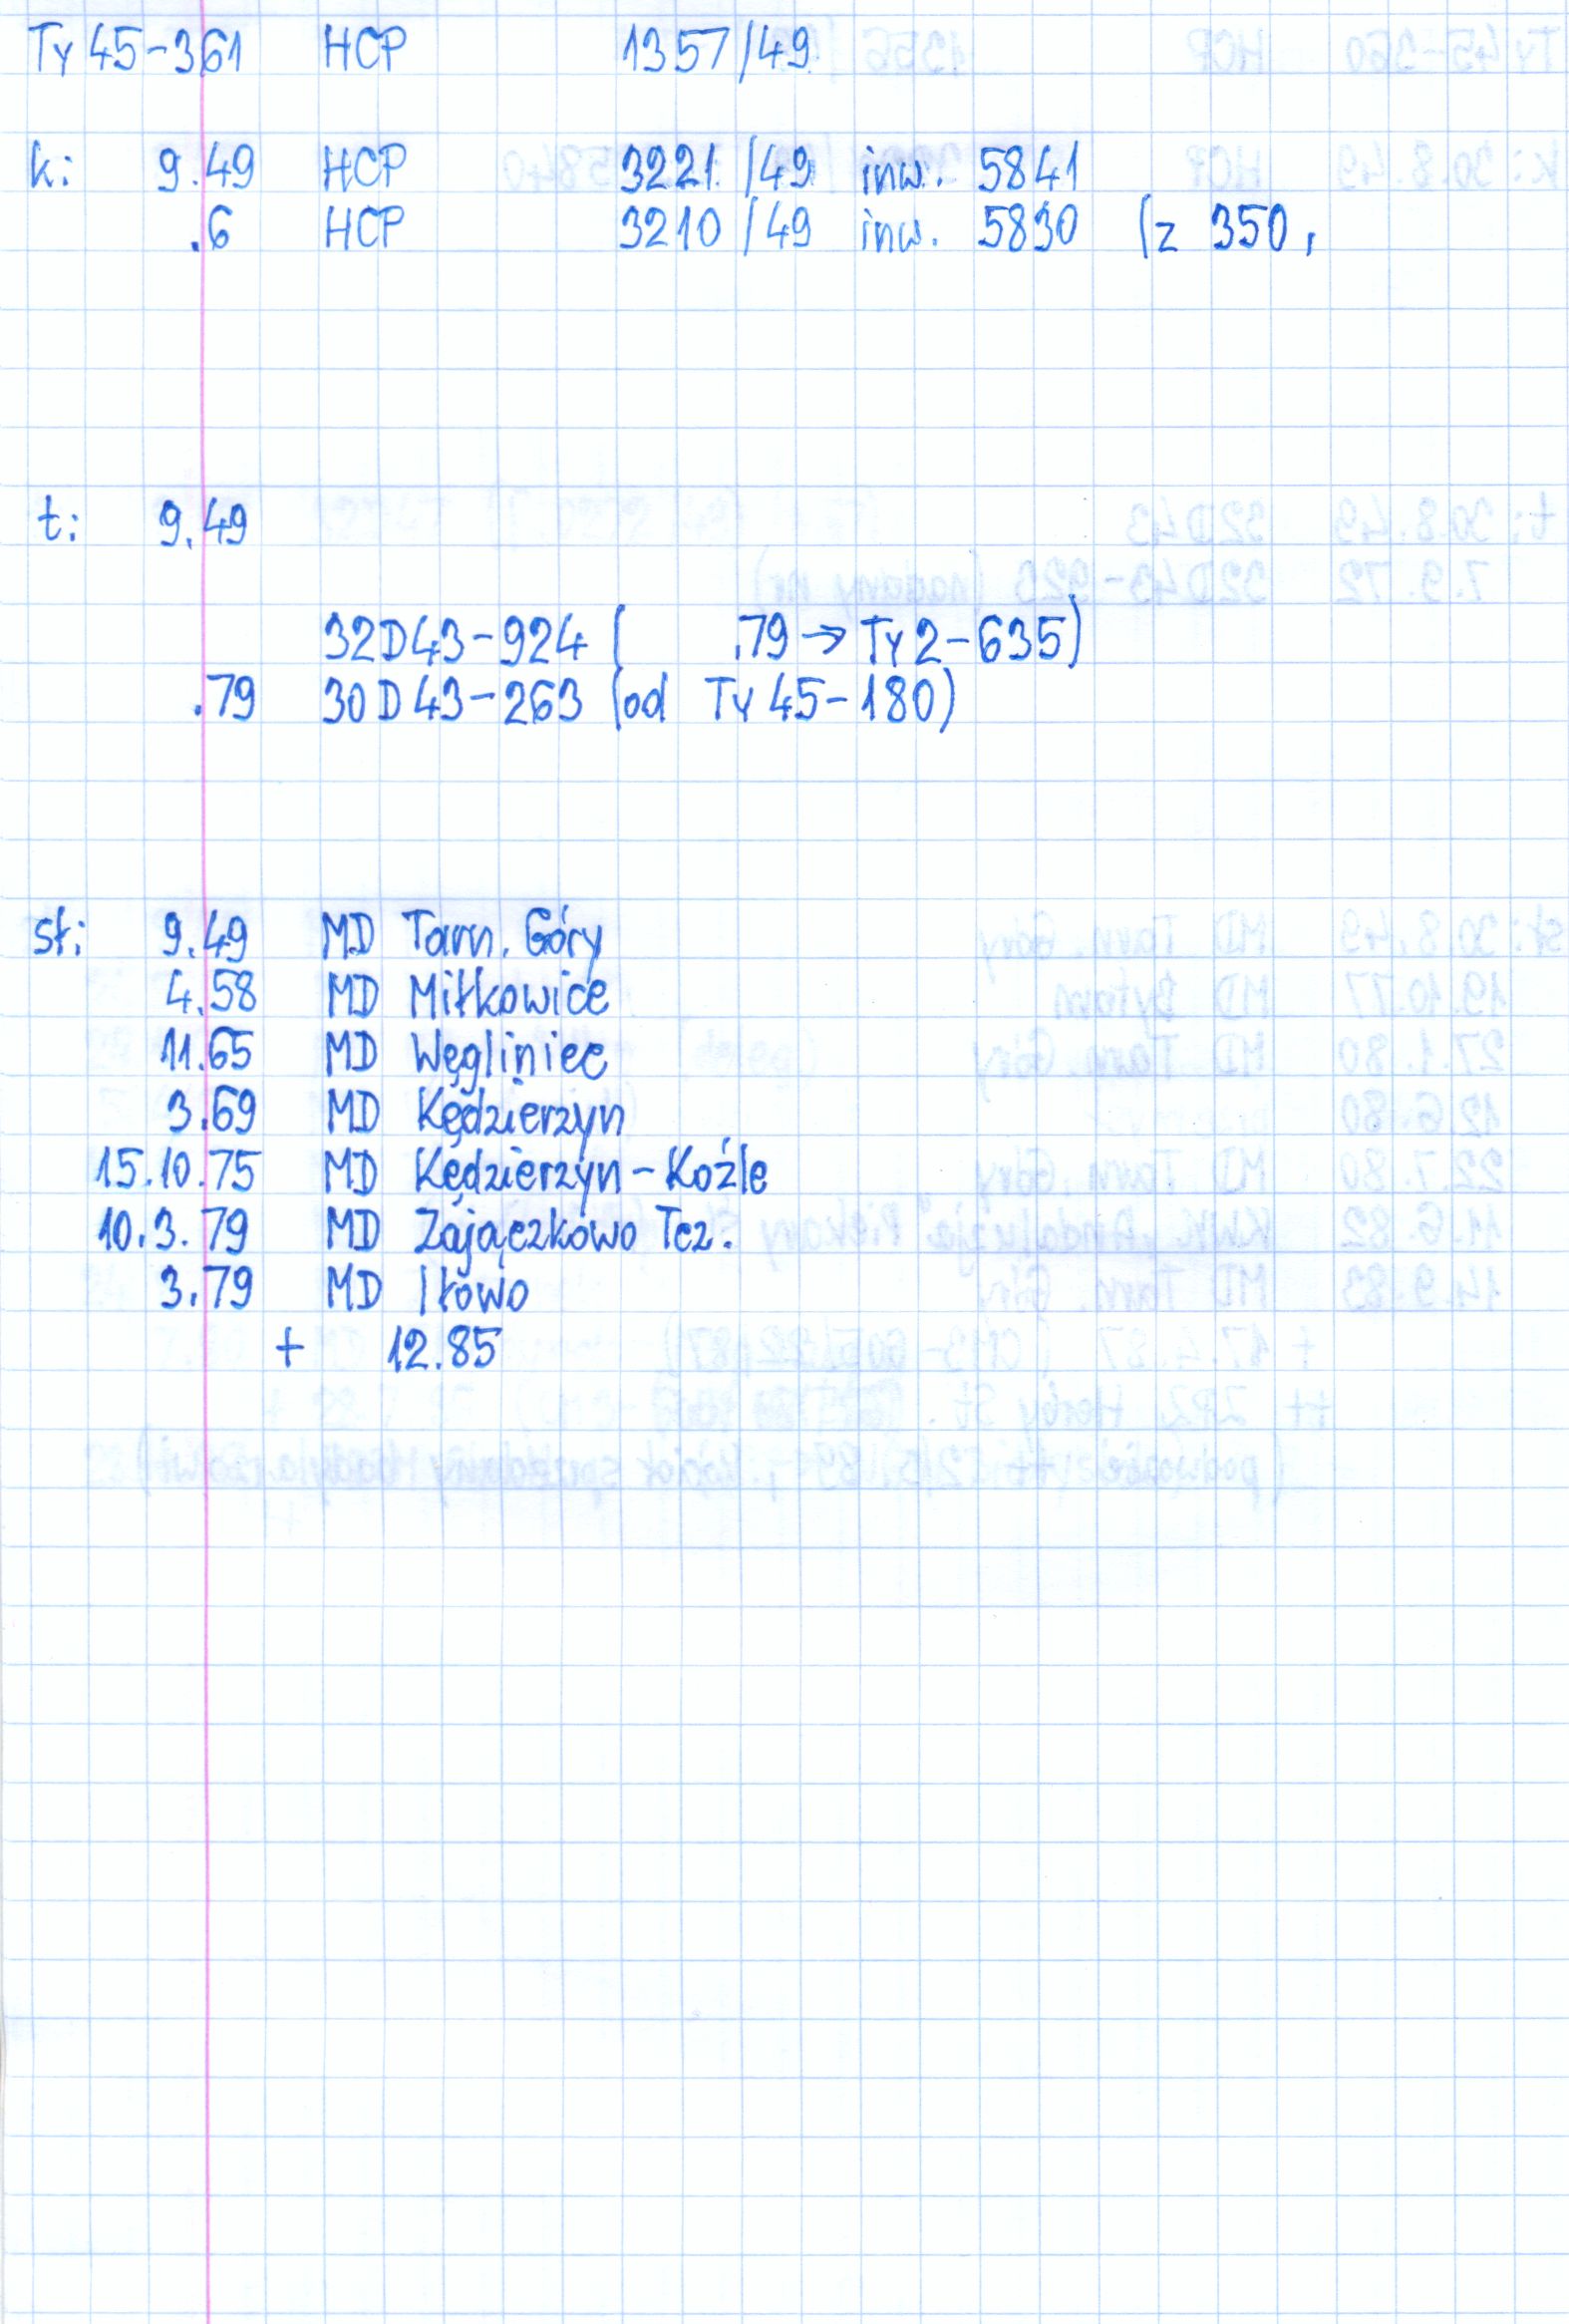 Ty 45-361 HCP 1357/49
k: 9.49 HCP 3221/49 inw. 5841
.6 HCP 3210/49 inw. 5830 (z 350,
t: 9.49
32D43-924 ( .79 → Ty2-635)
.79 30D43-263 (od Ty45-180)
st: 9.49 MD Tarn. Góry
4.58 MD Miłkowice
11.65 MD Węgliniec
3.69 MD Kędzierzyn
15.10.75 MD Kędzierzyn-Koźle
10.3.79 MD Zajączkowo Tcz.
3.79 MD Iłowo
+ 12.85